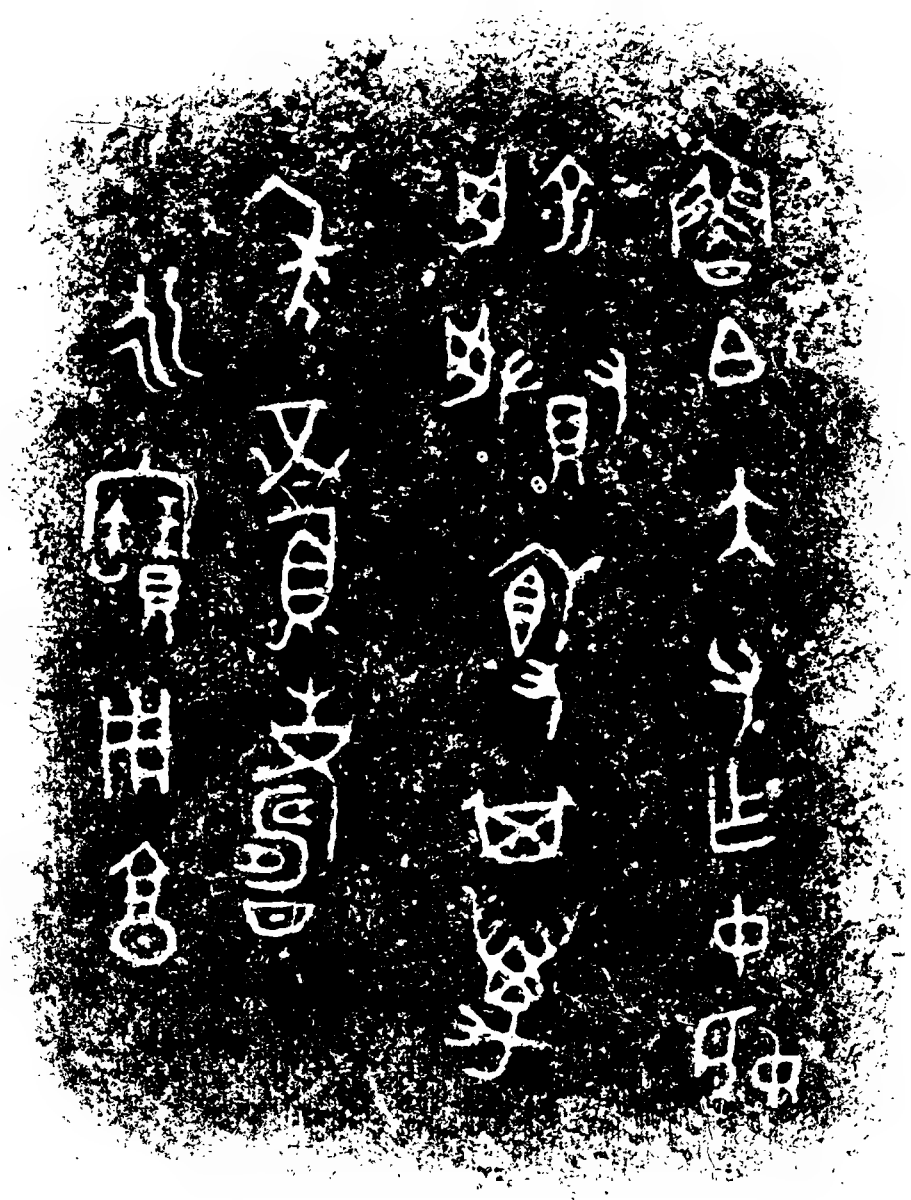 魯白大父乍中姬
俞賸簋其萬
年眉壽
永寶用享